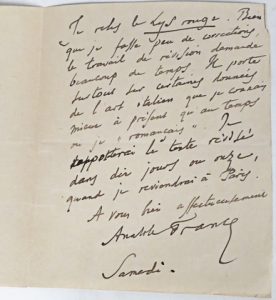 Je relis le Lys rouge. Bien
que je fasse peu de corrections,
le travail de révision demande
beaucoup de temps. Il porte
surtout sur certaines données
de l'art italien que je connais
mieux à présent qu'au temps
où je "romançais". Je
rapporterai le texte révisé
dans dix jours ou onze,
quand je reviendrai à Paris.
A vous bien affectueusement
Anatole France
Samedi.